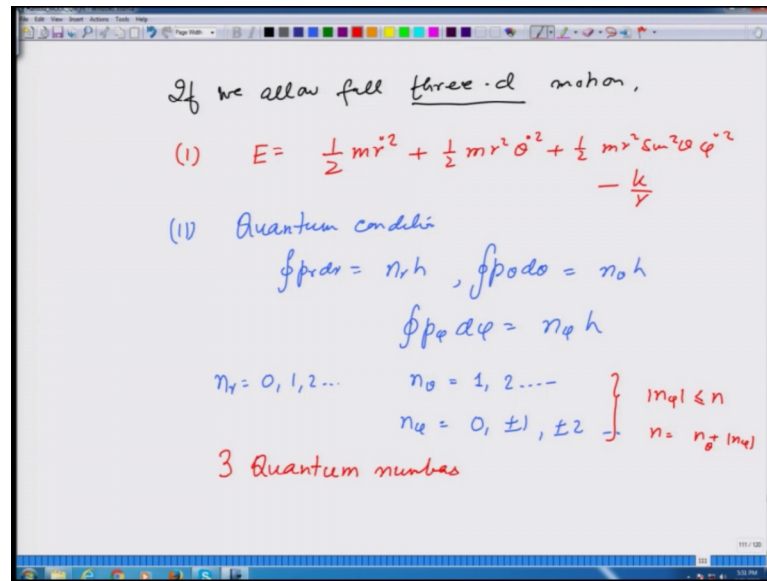 File Edit View Insert Actions Tools Help
Page Width B I
If we allow full three-d motion,
(1) E = 1/2 mṙ² + 1/2 mr² θ̇² + 1/2 mr² sin²θ φ̇²
− k/r
(11) Quantum condition
∮p_r dr = n_r h , ∮p_θ dθ = n_θ h
∮p_φ dφ = n_φ h
n_r = 0, 1, 2... n_θ = 1, 2....
n_φ = 0, ±1, ±2 ...
|n_φ| ≤ n
n = n_θ + |n_φ|
3 Quantum numbers
111 / 120
111
5:01 PM